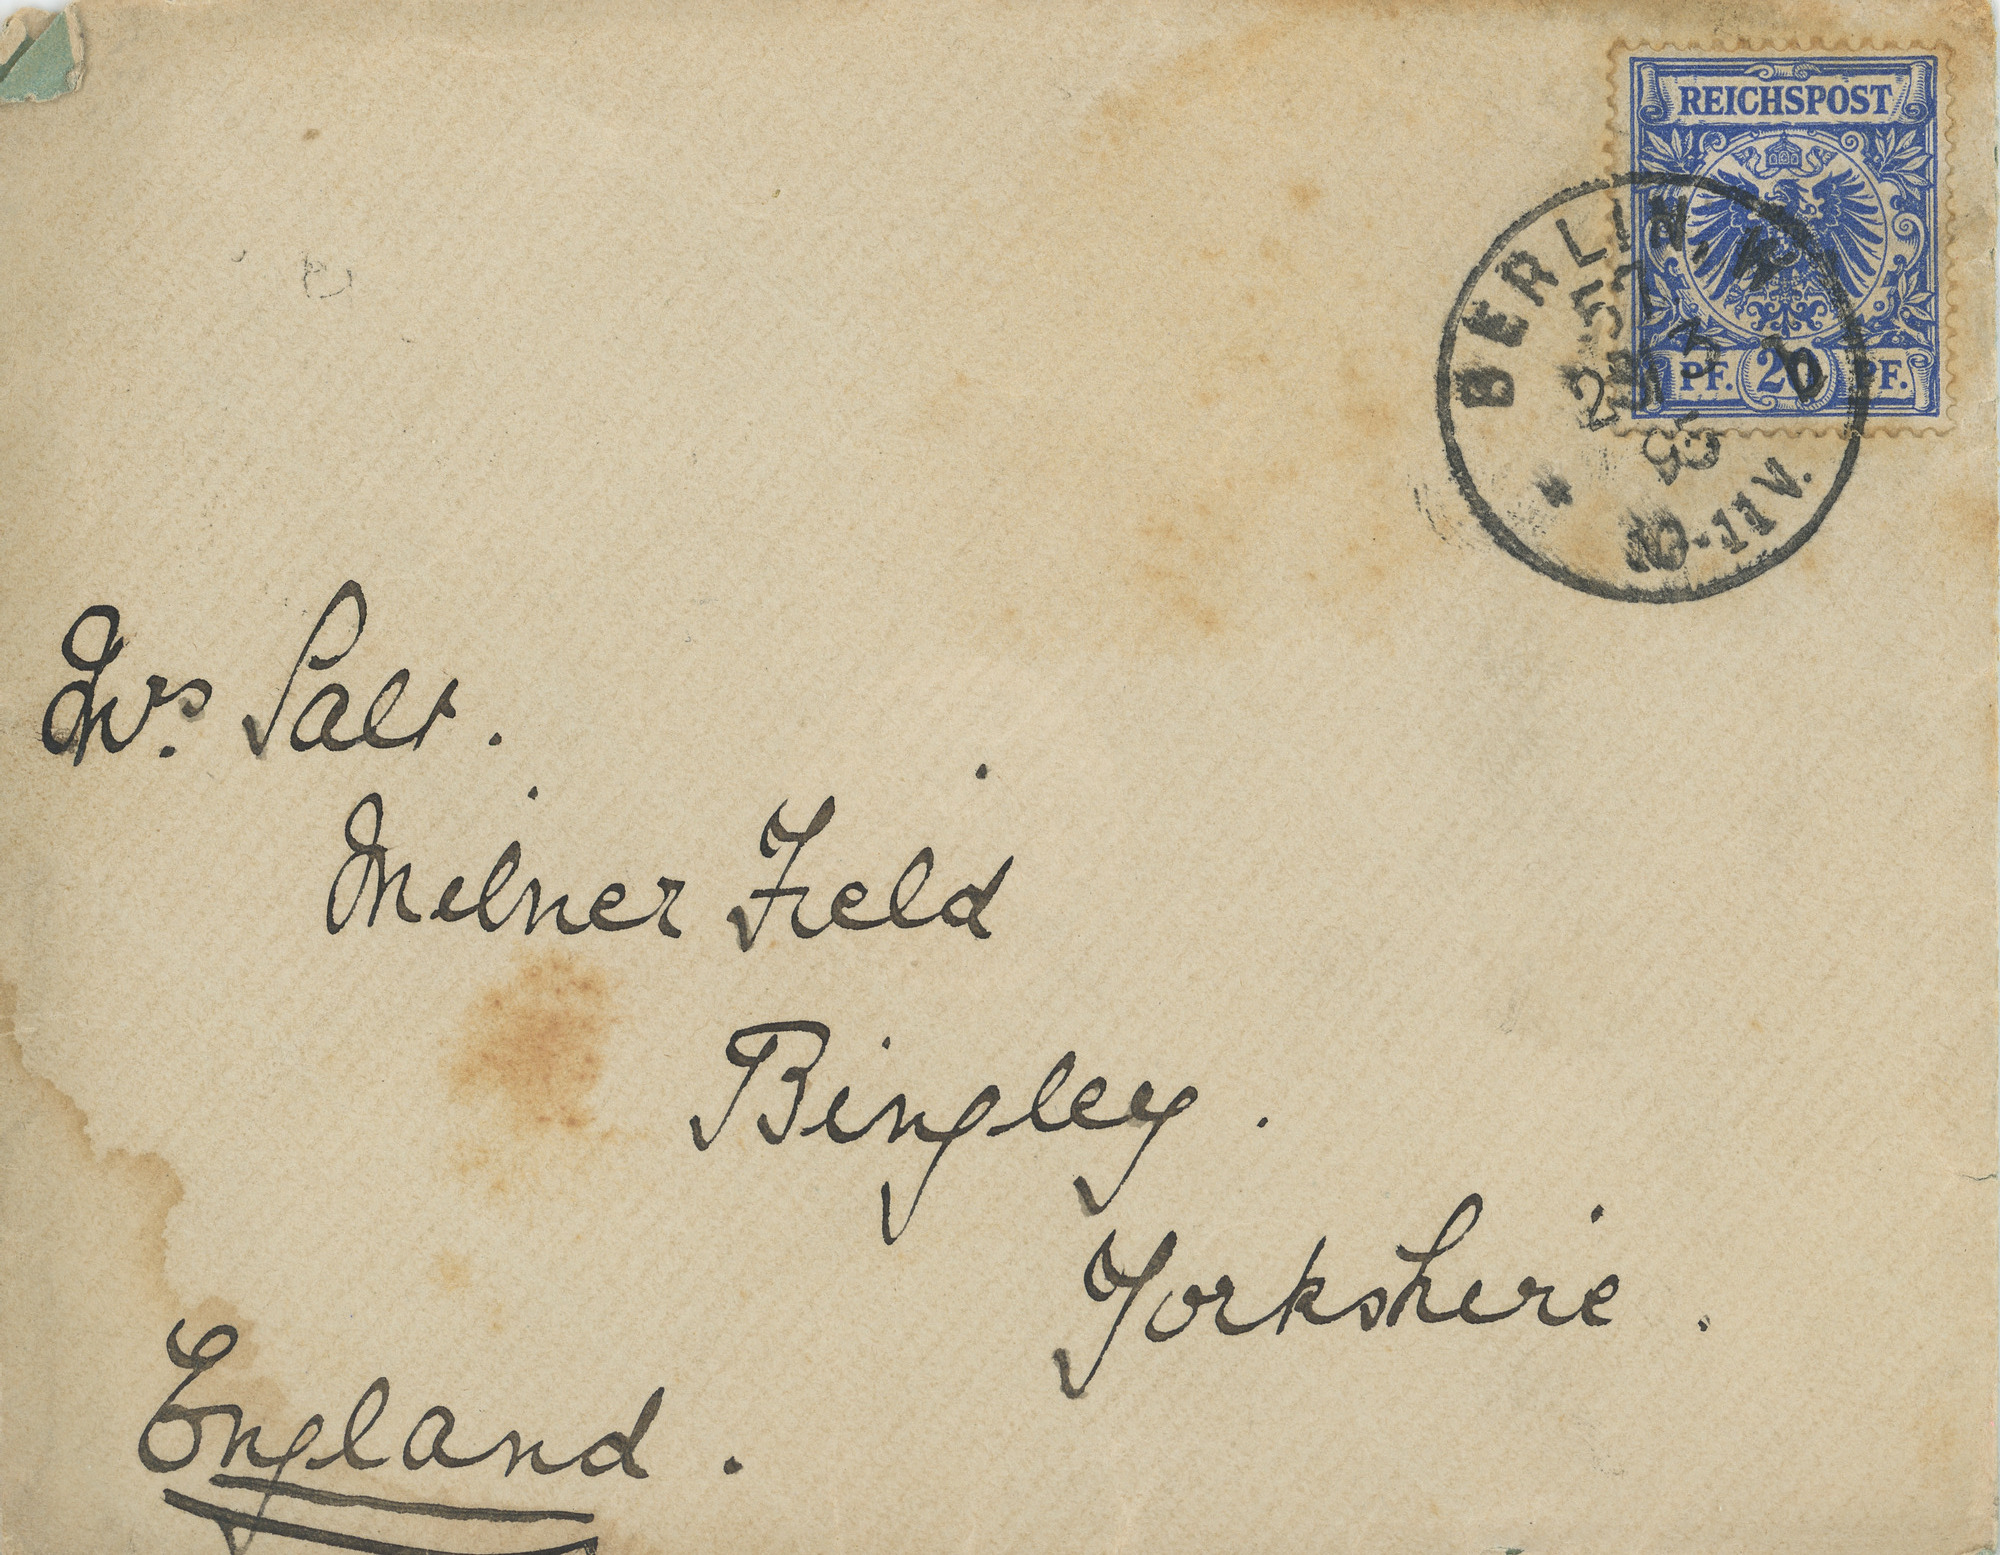 REICHSPOST
PF. 20 PF.
BERLIN, W
10-11V.
Mrs. Salt.
Milner Field
Bingley.
Yorkshire.
England.